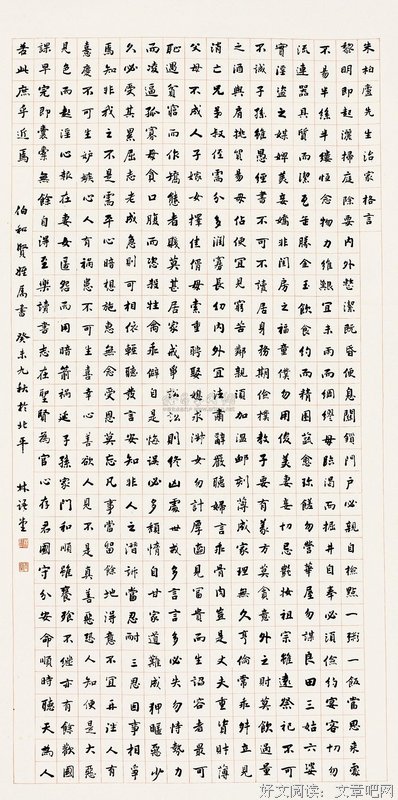 朱柏廬先生治家格言
黎明即起灑掃庭除要內外整潔既昏便息關鎖門戶必親自檢點一粥一飯當思來處
不易半絲半縷恒念物力維艱宜未雨而綢繆毋臨渴而掘井自奉必須儉約宴客切勿
流連器具質而潔瓦缶勝金玉飲食約而精園蔬愈珍饈勿營華屋勿謀良田三姑六婆
實淫盜之媒婢美妾嬌非閨房之福童僕勿用俊美妻妾切忌豔妝祖宗雖遠祭祀不可
不誠子孫雖愚經書不可不讀居身務期儉樸教子要有義方莫貪意外之財莫飲過量
之酒與肩挑貿易毋佔便宜見窮苦鄰親須加溫卹刻薄成家理無久享倫常乖舛立見
消亡兄弟叔侄須分多潤寡長幼內外宜法肅辭嚴聽婦言乖骨肉豈是丈夫重資財薄
父母不成人子嫁女擇佳婿毋索重聘娶媳求淑女勿計厚奩見富貴而生諂容者最可
恥遇貧窮而作驕態者賤莫甚居家戒爭訟訟則終凶處世戒多言言多必失勿恃勢力
而凌逼孤寡毋貪口腹而恣殺牲禽乖僻自是悔誤必多頹惰自甘家道難成狎暱惡少
久必受其累屈志老成急則可相依輕聽發言安知非人之譖訴當忍耐三思因事相爭
焉知非我之不是需平心暗想施惠無念受恩莫忘凡事當留餘地得意不宜再往人有
喜慶不可生妒嫉心人有禍患不可生喜幸心善欲人見不是真善惡恐人知便是大惡
見色而起淫心報在妻女匿怨而用暗箭禍延子孫家門和順雖饔飧不繼亦有餘歡國
課早完即囊橐無餘自得至樂讀書志在聖賢為官心存君國守分安命順時聽天為人
若此庶乎近焉
伯和賢姪屬書 癸未九秋於北平 林語堂
好文阅读：文章吧网